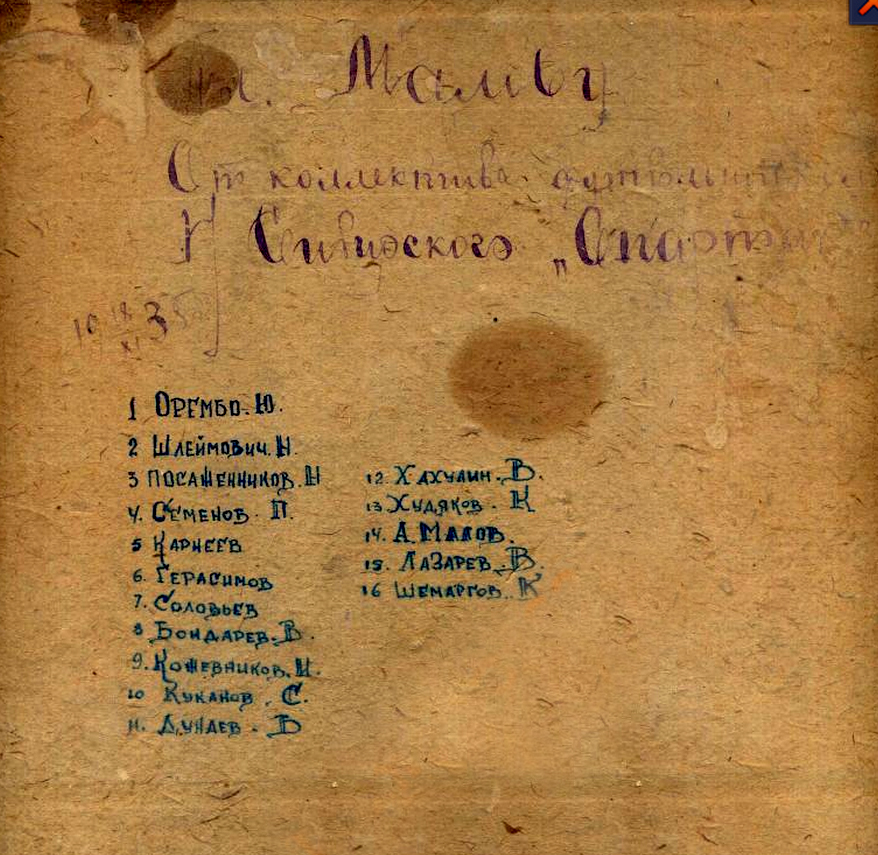 Малову
От коллектива футболистов
Н Сибирского „Спартак"
19 18/XI 35
1 Орембо. Ю.
2 Шлеймович. Н.
3 Посаженников. Н
4. Семенов. П.
5 Карнеев
6. Герасимов
7. Соловьев
8 Бондарев. В.
9. Кожевников. И.
10 Куканов. С.
11. Дунаев. Б
12. Хахулин. В.
13 Худяков. К
14. А. Малов.
15. Лазарев. В.
16 Шемаргов. К